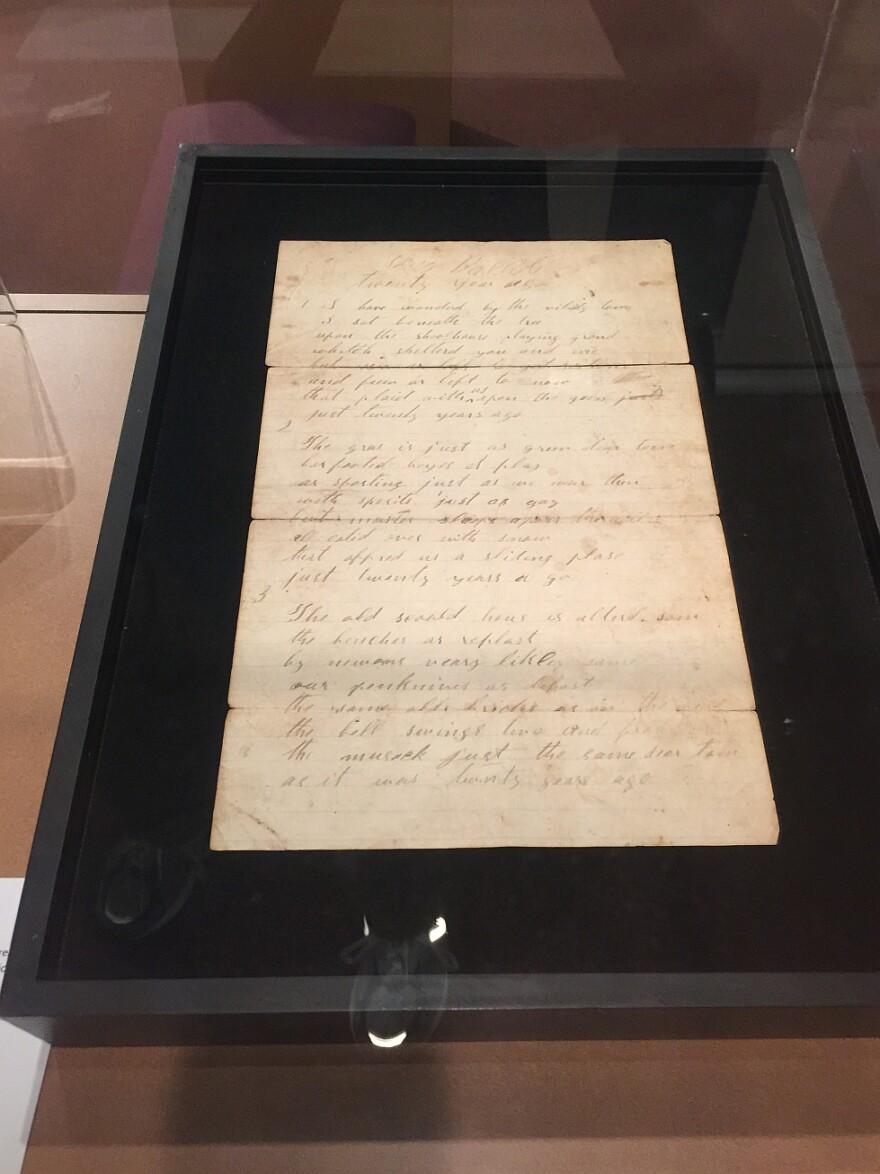 Song Ballob
twenty year ago
1 I have wanderd by the vilidg tom
I sat beneath the tree
upon the shoolhouse playing grond
whitch shelterd you and me
but
and few ar left to now
that plaid with us upon the green just
just twenty years ago
2
The gras is just as green dear tom
bar footed boyes at play
ar sporting just as we war then
with sperits just as gay
but master sleeps apon the
all cotid over with snow
that afford us a sliding plase
just twenty years a go
3
The old scoold hous is alterd som
the benches ar replast
by newons veary likley same
our penknives as
the same olde bricks as in the
the bell swings two and fro
the museck just the same dear tom
as it was twenty years ago